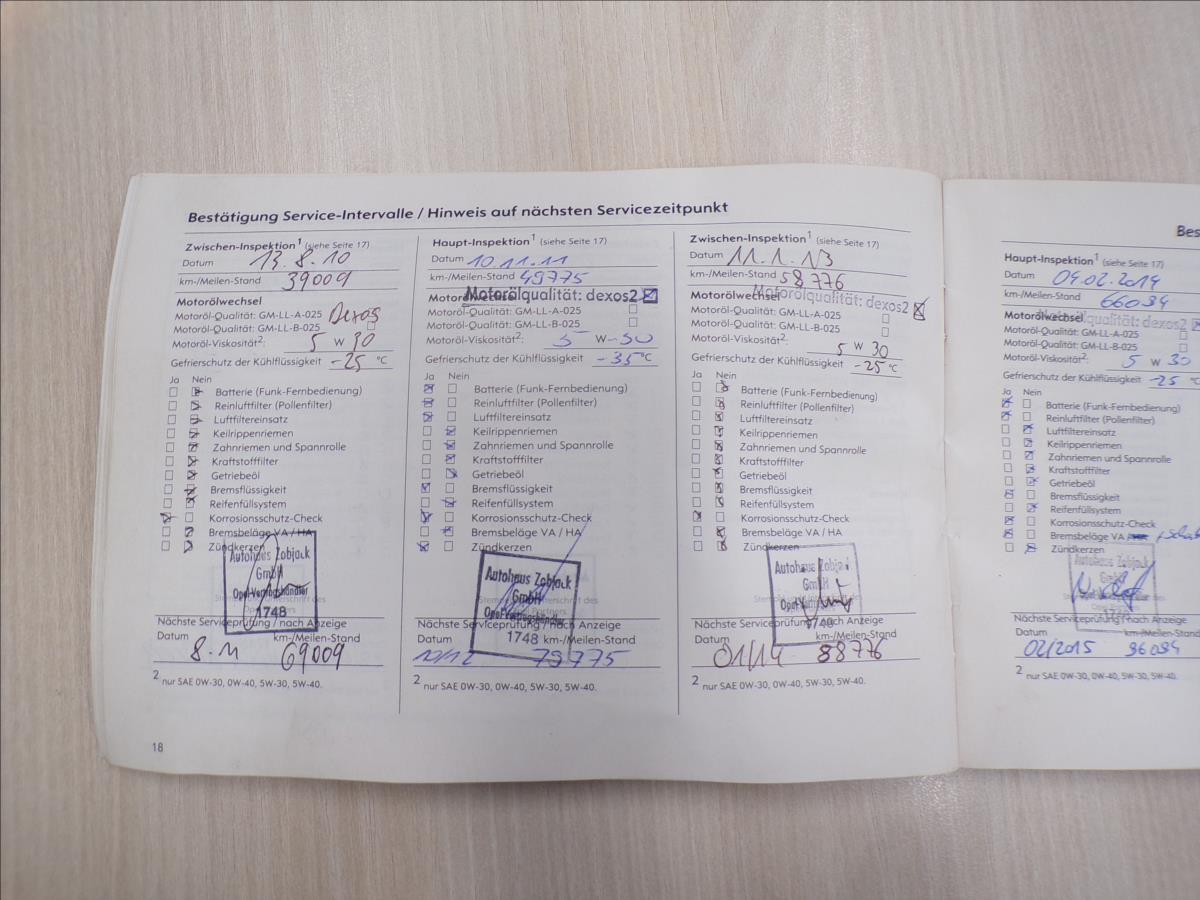 Bestätigung Service-Intervalle / Hinweis auf nächsten Servicezeitpunkt
Zwischen-Inspektion¹ (siehe Seite 17)
Datum 13.8.10
km-/Meilen-Stand 39009
Motorölwechsel
Motoröl-Qualität: GM-LL-A-025 Dexos
Motoröl-Qualität: GM-LL-B-025
Motoröl-Viskosität²: 5 W 30
Gefrierschutz der Kühlflüssigkeit -25 °C
Ja Nein
Batterie (Funk-Fernbedienung)
Reinluftfilter (Pollenfilter)
Luftfiltereinsatz
Keilrippenriemen
Zahnriemen und Spannrolle
Kraftstofffilter
Getriebeöl
Bremsflüssigkeit
Reifenfüllsystem
Korrosionsschutz-Check
Bremsbeläge VA / HA
Zündkerzen
Autohaus Zobjack
GmbH
Opel-Vertragshändler
1748
Nächste Serviceprüfung / nach Anzeige
Datum km-/Meilen-Stand
8.11 69009
² nur SAE 0W-30, 0W-40, 5W-30, 5W-40.
18
Haupt-Inspektion¹ (siehe Seite 17)
Datum 10.11.11
km-/Meilen-Stand 49775
Motorölwechsel
Motorölqualität: dexos2
Motoröl-Qualität: GM-LL-A-025
Motoröl-Qualität: GM-LL-B-025
Motoröl-Viskosität²: 5 W-30
Gefrierschutz der Kühlflüssigkeit -35 °C
Ja Nein
Batterie (Funk-Fernbedienung)
Reinluftfilter (Pollenfilter)
Luftfiltereinsatz
Keilrippenriemen
Zahnriemen und Spannrolle
Kraftstofffilter
Getriebeöl
Bremsflüssigkeit
Reifenfüllsystem
Korrosionsschutz-Check
Bremsbeläge VA / HA
Zündkerzen
Autohaus Zobjack
GmbH
Opel-Vertragshändler
1748
Nächste Serviceprüfung / nach Anzeige
Datum km-/Meilen-Stand
79775
² nur SAE 0W-30, 0W-40, 5W-30, 5W-40.
Zwischen-Inspektion¹ (siehe Seite 17)
Datum 11.1.13
km-/Meilen-Stand 58776
Motorölwechsel
Motorölqualität: dexos2
Motoröl-Qualität: GM-LL-A-025
Motoröl-Qualität: GM-LL-B-025
Motoröl-Viskosität²: 5 W 30
Gefrierschutz der Kühlflüssigkeit -25 °C
Ja Nein
Batterie (Funk-Fernbedienung)
Reinluftfilter (Pollenfilter)
Luftfiltereinsatz
Keilrippenriemen
Zahnriemen und Spannrolle
Kraftstofffilter
Getriebeöl
Bremsflüssigkeit
Reifenfüllsystem
Korrosionsschutz-Check
Bremsbeläge VA / HA
Zündkerzen
Autohaus Zobjack
GmbH
1748
Nächste Serviceprüfung / nach Anzeige
Datum km-/Meilen-Stand
01/14 88776
² nur SAE 0W-30, 0W-40, 5W-30, 5W-40.
Bes
Haupt-Inspektion¹ (siehe Seite 17)
Datum 04.02.2014
km-/Meilen-Stand 66094
Motorölwechsel
Motorölqualität: dexos2
Motoröl-Qualität: GM-LL-A-025
Motoröl-Qualität: GM-LL-B-025
Motoröl-Viskosität²: 5 W 30
Gefrierschutz der Kühlflüssigkeit -25 °C
Ja Nein
Batterie (Funk-Fernbedienung)
Reinluftfilter (Pollenfilter)
Luftfiltereinsatz
Keilrippenriemen
Zahnriemen und Spannrolle
Kraftstofffilter
Getriebeöl
Bremsflüssigkeit
Reifenfüllsystem
Korrosionsschutz-Check
Bremsbeläge VA
Zündkerzen
Autohaus Zobjack
GmbH
1748
Nächste Serviceprüfung / nach Anzeige
Datum km-/Meilen-Stand
02/2015 96094
² nur SAE 0W-30, 0W-40, 5W-30, 5W-40.